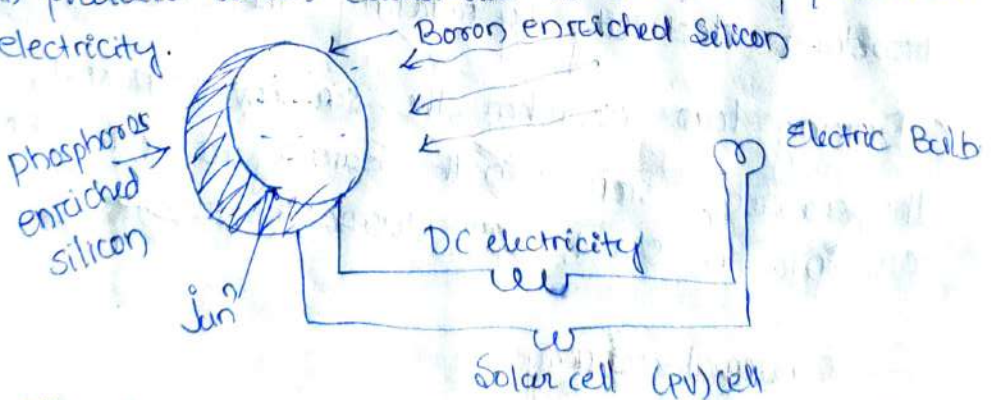 electricity.
Boron enraiched Silicon
phosphoras
enraiched
silicon
Electric Bulb
DC electricity
Junⁿ
Solar cell (PV) cell